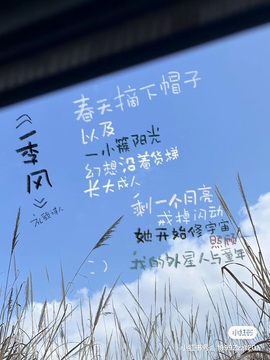 《一季风》
春天摘下帽子
以及
一小簇阳光
幻想沿着货梯
长大成人
剩一个月亮
戒掉闪动
她开始修宇宙
照顾
我的外星人与童年
:)
小红书